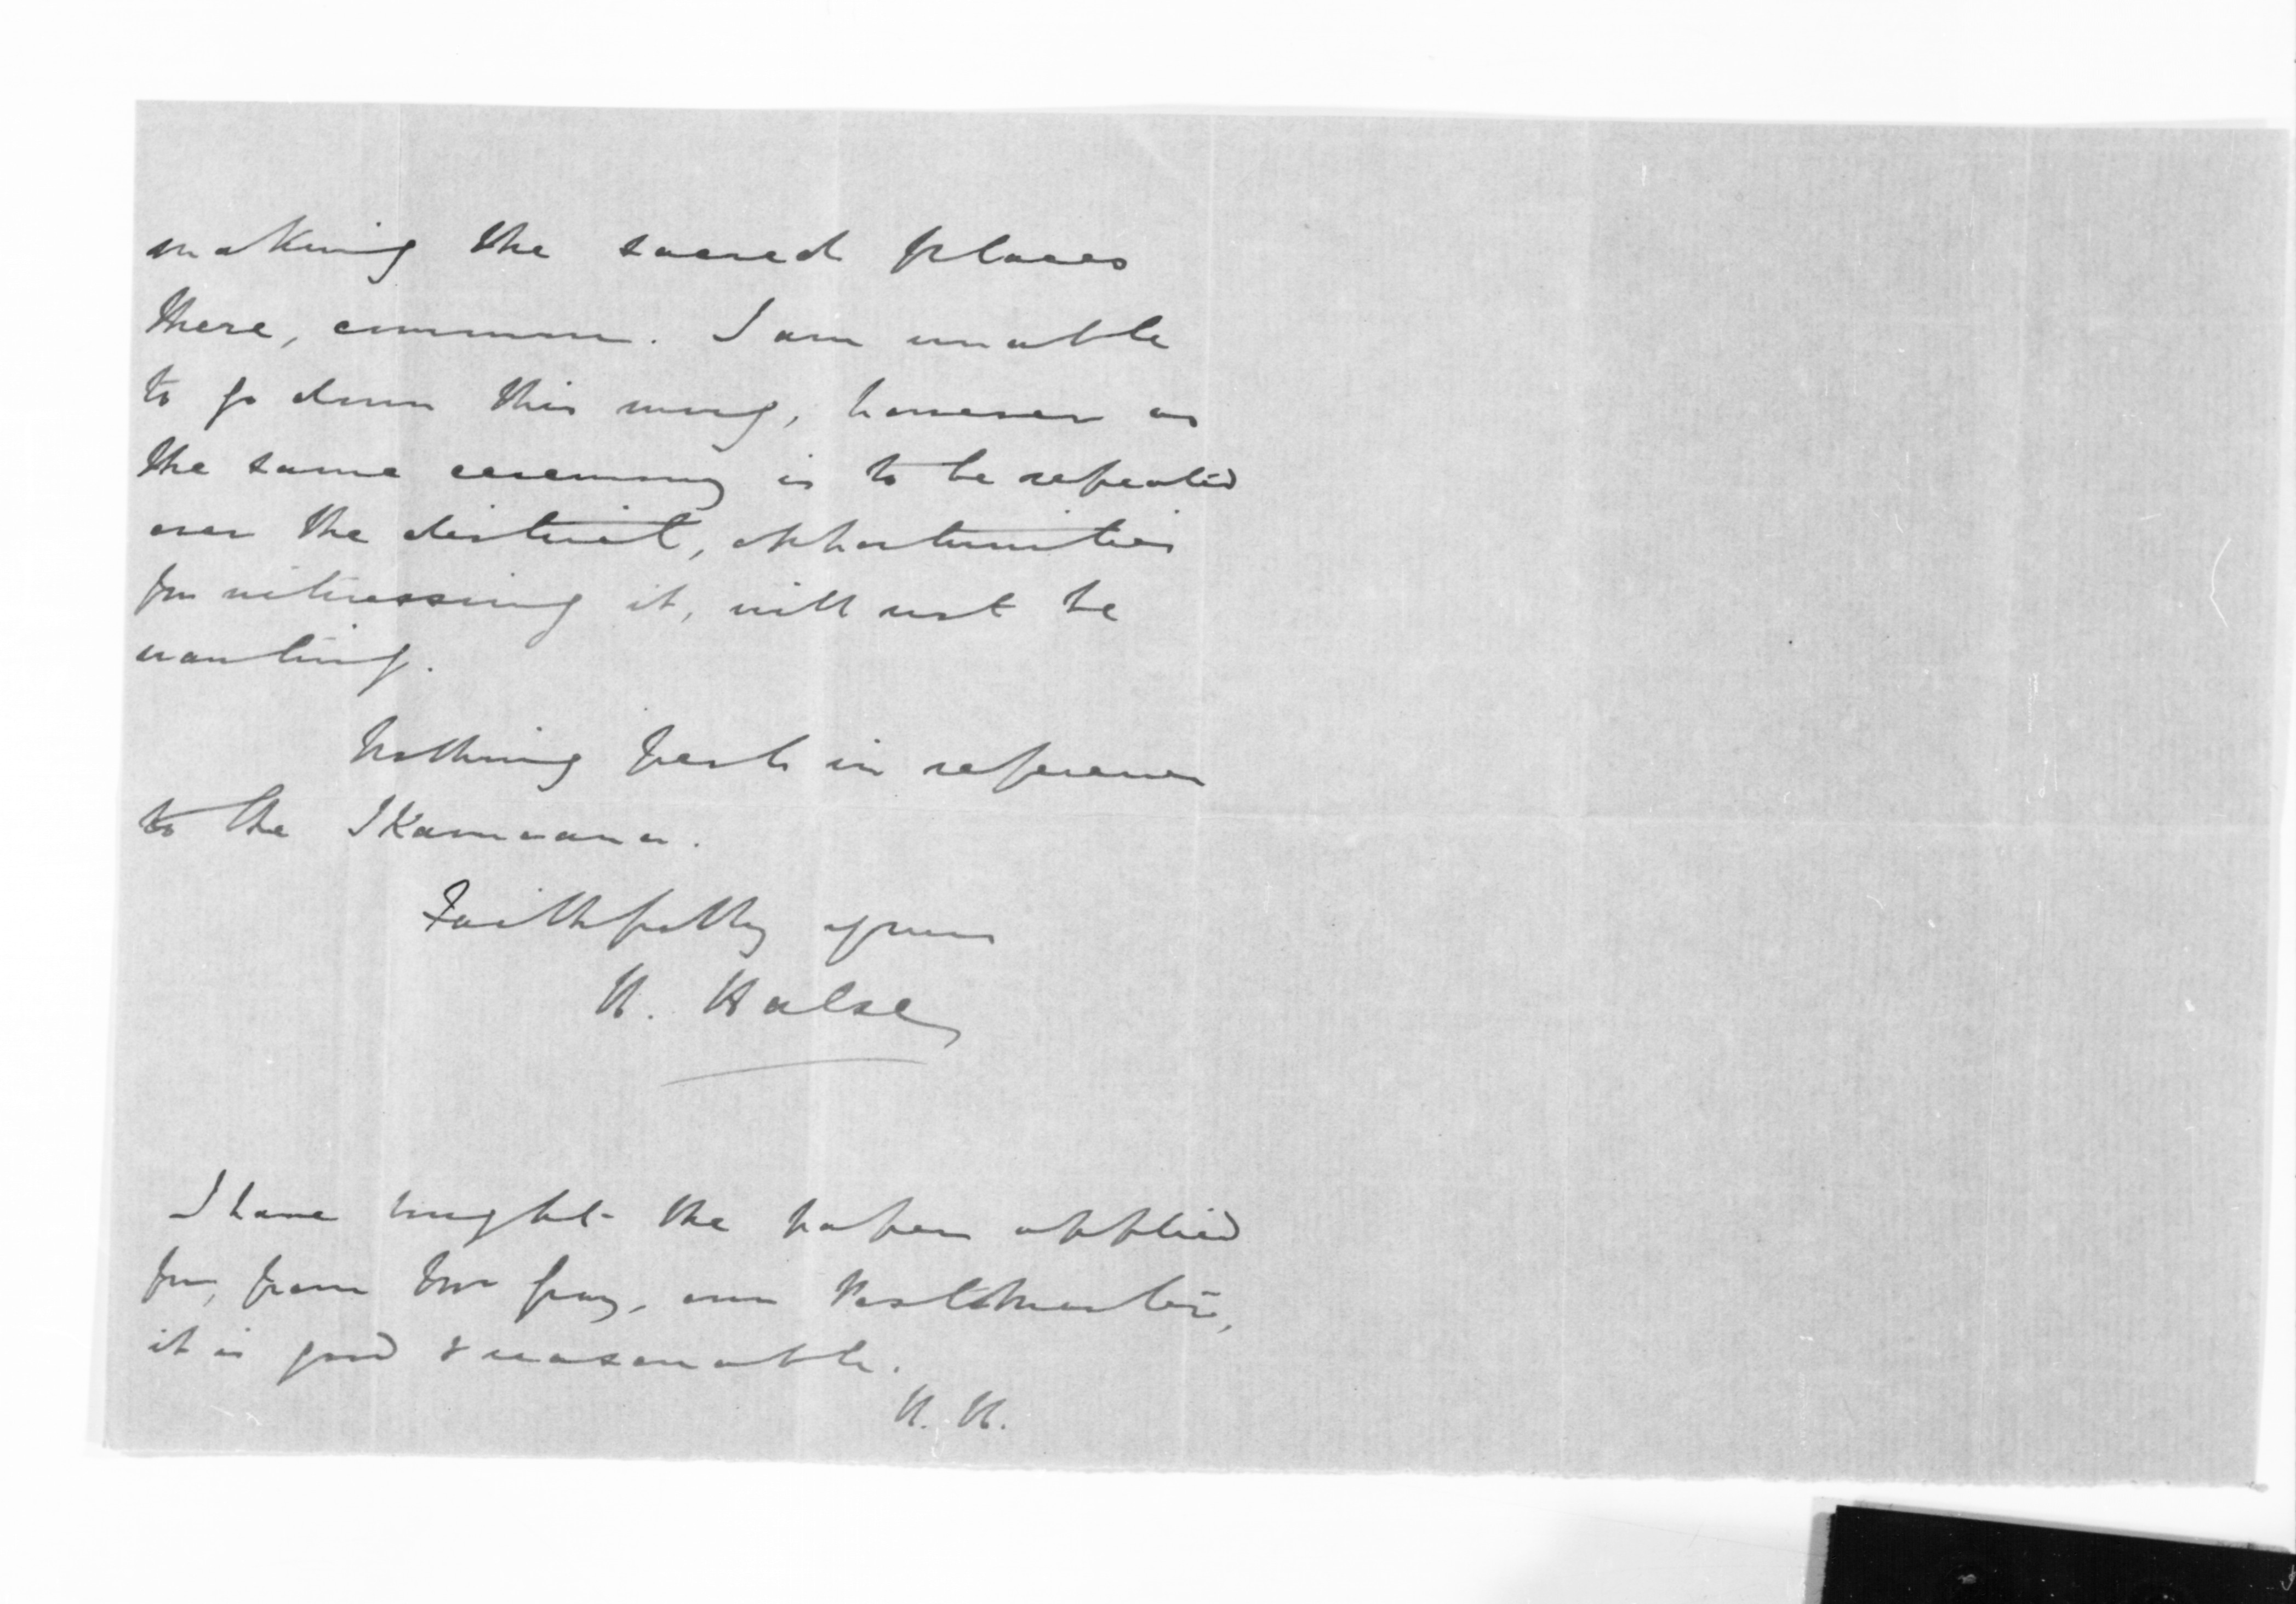 making the sacred places
there, common. I am unable
to go down this morng, however as
the same ceremony is to be repeated
over the district, opportunities
for witnessing it, will not be
wanting.
Nothing fresh in reference
to the Ikamoana.
Faithfully yours
H. Halse
I have bought the paper applied
for, from our Postmaster,
it is good & reasonable.
H. H.